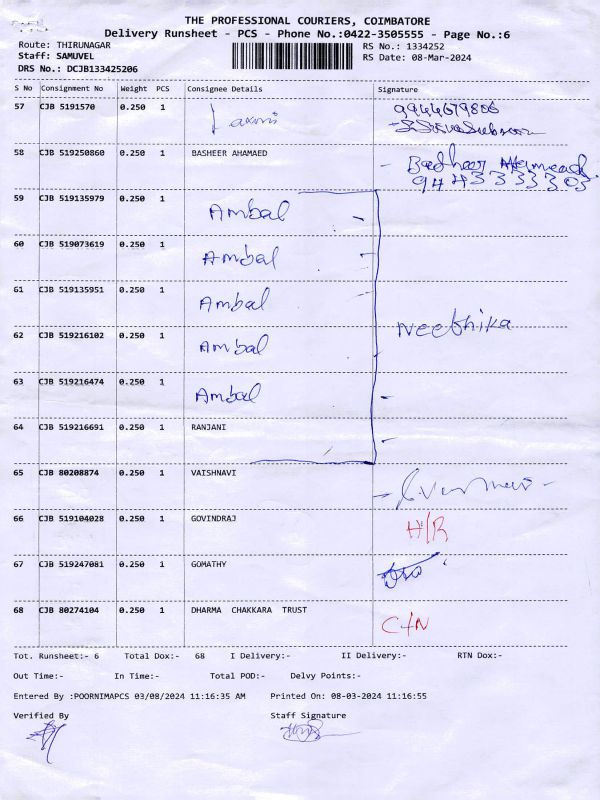 THE PROFESSIONAL COURIERS, COIMBATORE
Delivery Runsheet - PCS - Phone No.:0422-3505555 - Page No.:6
Route: THIRUNAGAR RS No.: 1334252
Staff: SAMUVEL RS Date: 08-Mar-2024
DRS No.: DCJB133425206
S No Consignment No Weight PCS Consignee Details Signature
57 CJB 5191570 0.250 1 Laxmi
58 CJB 519250860 0.250 1 BASHEER AHAMAED Basheer Ahamaed
9443333303
59 CJB 519135979 0.250 1 Ambal
60 CJB 519073619 0.250 1 Ambal
61 CJB 519135951 0.250 1 Ambal
Neethika
62 CJB 519216102 0.250 1 Ambal
63 CJB 519216474 0.250 1 Ambal
64 CJB 519216691 0.250 1 RANJANI
65 CJB 80208874 0.250 1 VAISHNAVI
66 CJB 519104028 0.250 1 GOVINDRAJ H/R
67 CJB 519247081 0.250 1 GOMATHY
68 CJB 80274104 0.250 1 DHARMA CHAKKARA TRUST C/N
Tot. Runsheet:- 6 Total Dox:- 68 I Delivery:- II Delivery:- RTN Dox:-
Out Time:- In Time:- Total POD:- Delvy Points:-
Entered By :POORNIMAPCS 03/08/2024 11:16:35 AM Printed On: 08-03-2024 11:16:55
Verified By Staff Signature